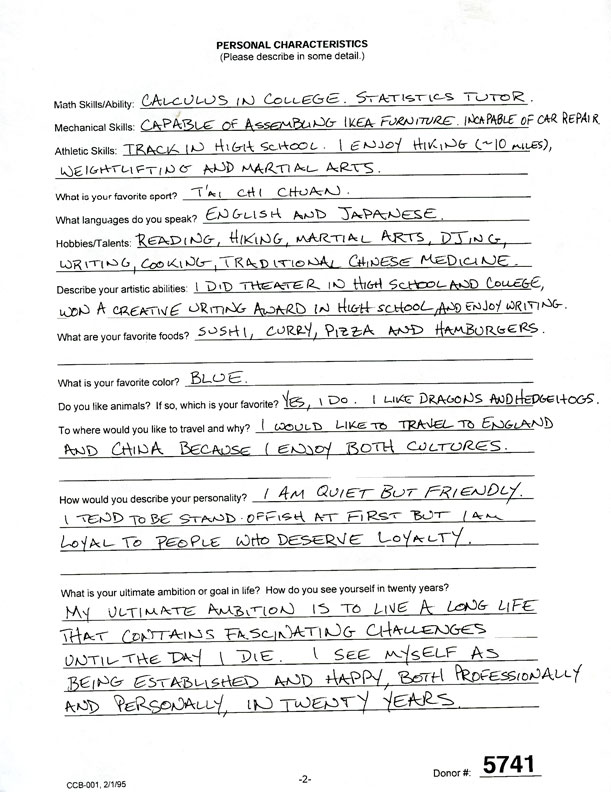 PERSONAL CHARACTERISTICS
(Please describe in some detail.)
Math Skills/Ability: CALCULUS IN COLLEGE. STATISTICS TUTOR.
Mechanical Skills: CAPABLE OF ASSEMBLING IKEA FURNITURE. INCAPABLE OF CAR REPAIR
Athletic Skills: TRACK IN HIGH SCHOOL. I ENJOY HIKING (~10 MILES),
WEIGHTLIFTING AND MARTIAL ARTS.
What is your favorite sport? T'AI CHI CHUAN.
What languages do you speak? ENGLISH AND JAPANESE.
Hobbies/Talents: READING, HIKING, MARTIAL ARTS, DJING,
WRITING, COOKING, TRADITIONAL CHINESE MEDICINE.
Describe your artistic abilities: I DID THEATER IN HIGH SCHOOL AND COLLEGE,
WON A CREATIVE WRITING AWARD IN HIGH SCHOOL, AND ENJOY WRITING.
What are your favorite foods? SUSHI, CURRY, PIZZA AND HAMBURGERS.
What is your favorite color? BLUE.
Do you like animals? If so, which is your favorite? YES, I DO. I LIKE DRAGONS AND HEDGEHOGS.
To where would you like to travel and why? I WOULD LIKE TO TRAVEL TO ENGLAND
AND CHINA BECAUSE I ENJOY BOTH CULTURES.
How would you describe your personality? I AM QUIET BUT FRIENDLY.
I TEND TO BE STAND-OFFISH AT FIRST BUT I AM
LOYAL TO PEOPLE WHO DESERVE LOYALTY.
What is your ultimate ambition or goal in life? How do you see yourself in twenty years?
MY ULTIMATE AMBITION IS TO LIVE A LONG LIFE
THAT CONTAINS FASCINATING CHALLENGES
UNTIL THE DAY I DIE. I SEE MYSELF AS
BEING ESTABLISHED AND HAPPY, BOTH PROFESSIONALLY
AND PERSONALLY, IN TWENTY YEARS.
CCB-001, 2/1/95 -2- Donor #: 5741